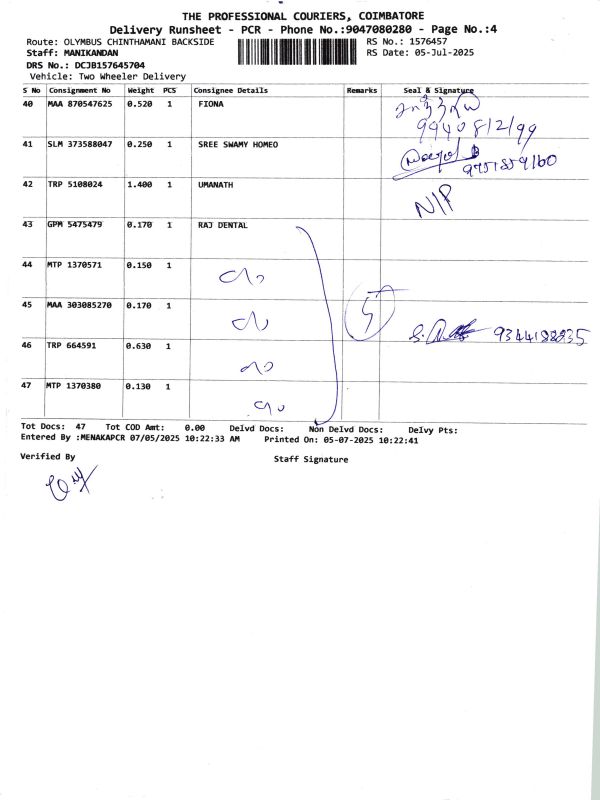 THE PROFESSIONAL COURIERS, COIMBATORE
Delivery Runsheet - PCR - Phone No.:9047080280 - Page No.:4
Route: OLYMBUS CHINTHAMANI BACKSIDE RS No.: 1576457
Staff: MANIKANDAN RS Date: 05-Jul-2025
DRS No.: DCJB157645704
Vehicle: Two Wheeler Delivery
S No Consignment No Weight PCS Consignee Details Remarks Seal & Signature
40 MAA 870547625 0.520 1 FIONA
9940812199
41 SLM 373588047 0.250 1 SREE SWAMY HOMEO
42 TRP 5108024 1.400 1 UMANATH N/P
43 GPM 5475479 0.170 1 RAJ DENTAL
44 MTP 1370571 0.150 1
45 MAA 303085270 0.170 1 5
46 TRP 664591 0.630 1
47 MTP 1370380 0.130 1
Tot Docs: 47 Tot COD Amt: 0.00 Delvd Docs: Non Delvd Docs: Delvy Pts:
Entered By :MENAKAPCR 07/05/2025 10:22:33 AM Printed On: 05-07-2025 10:22:41
Verified By Staff Signature